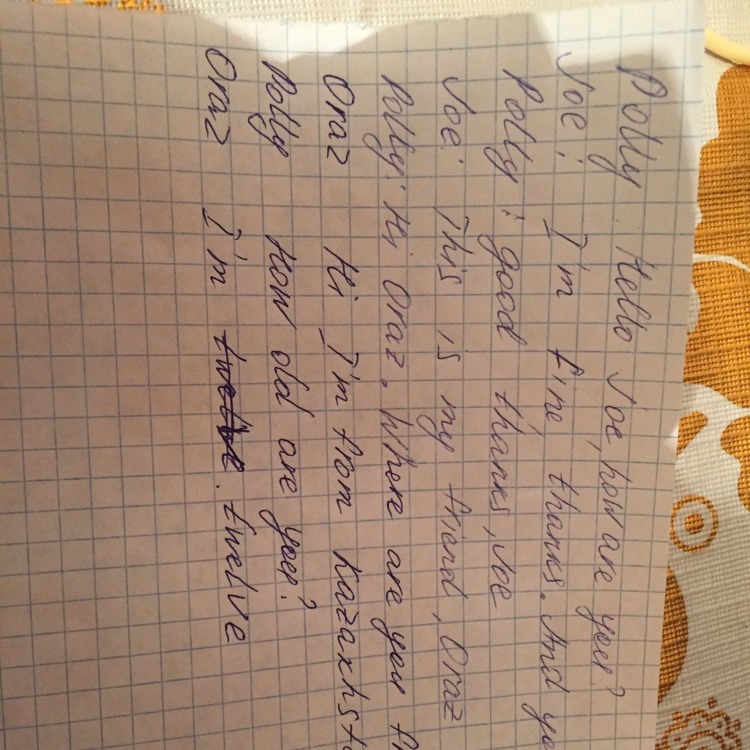 Polly Hello Joe, how are you?
Joe: I'm fine, thanks. And
Polly: good thanks, Joe
Joe: This is my friend, Oraz
Polly: Hi Oraz. Where are you
Oraz Hi I'm from
Polly How old are you?
Oraz I'm twelve. twelve